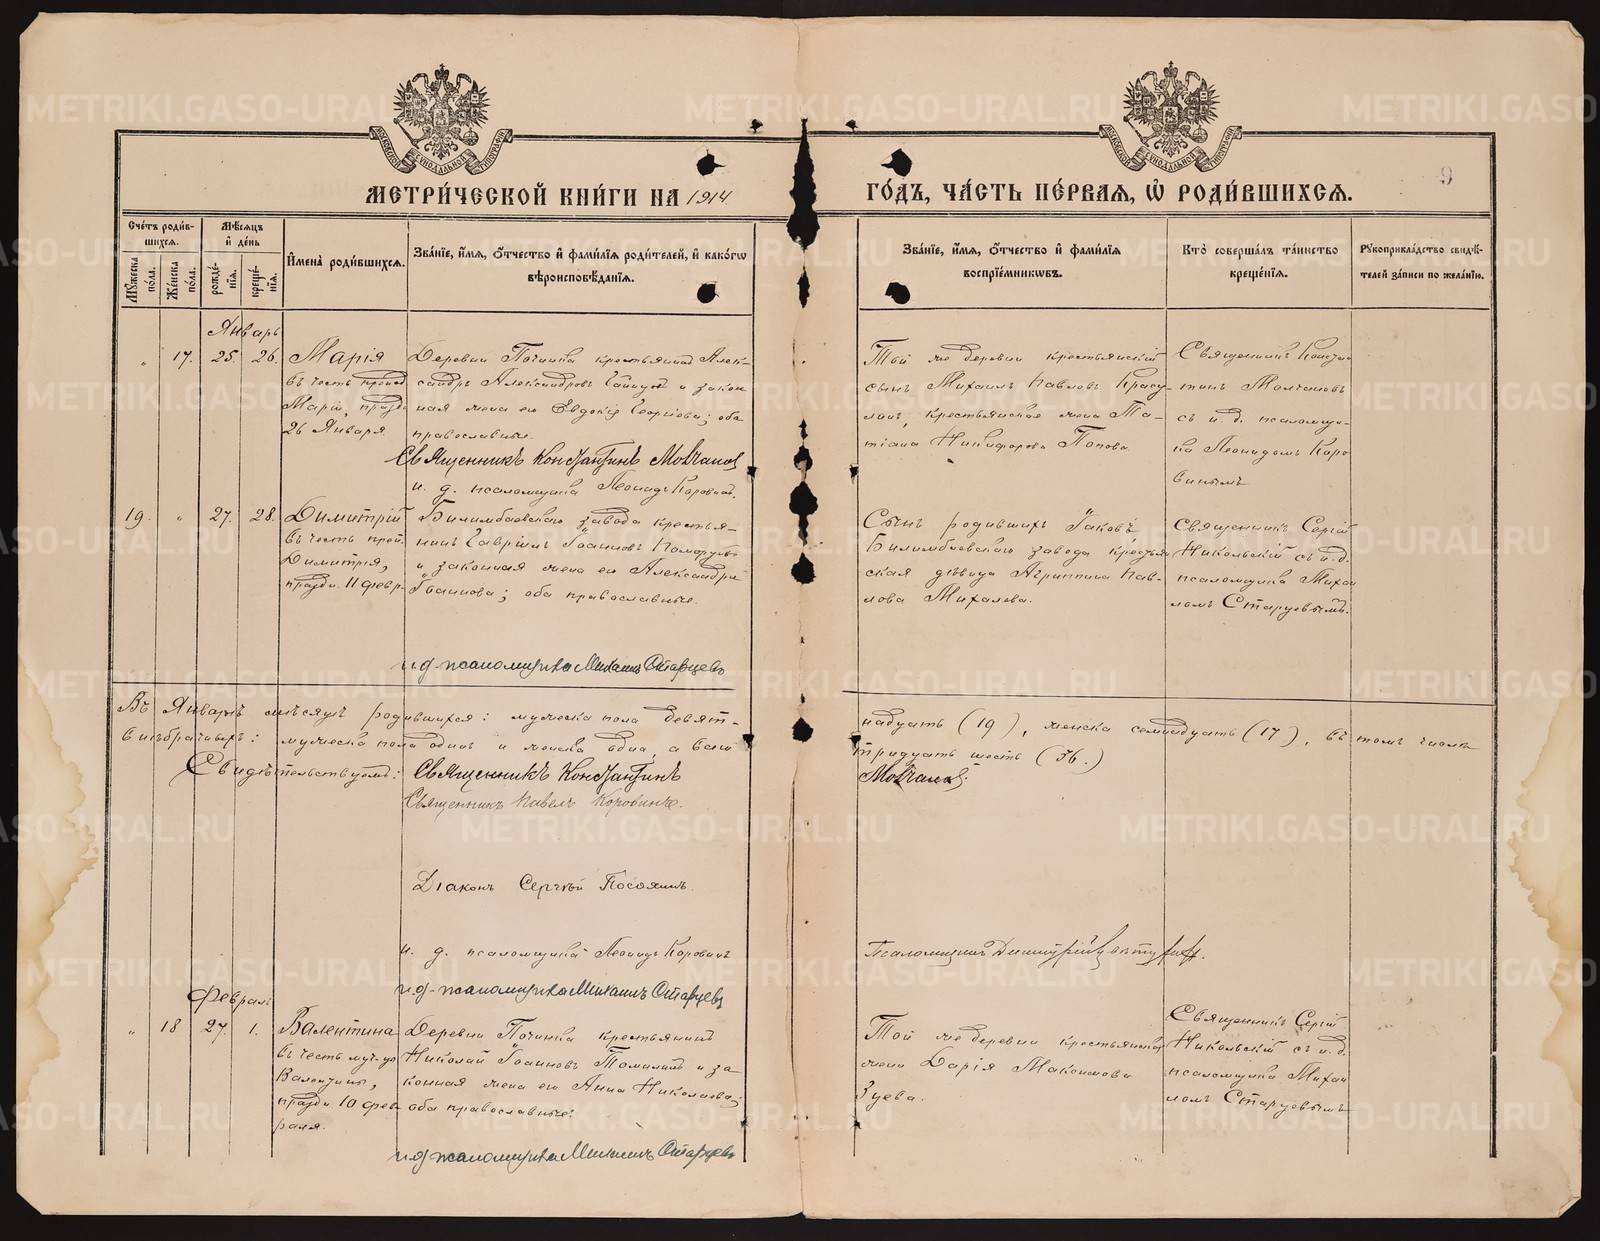 МЕТРИ́ЧЕСКОЙ КНИ́ГИ НА 1914
ГО́ДЪ, ЧА́СТЬ ПЕ́РВАЯ, Ѿ РОДИ́ВШИХСЯ.
9
Сче́тъ роди́в-
шихся.
Мѣ́сяцъ
и҆ де́нь
Му́жеска по́ла.
Же́нска по́ла.
рожде́-нїя.
креще́-нїя.
И҆мена̀ роди́вшихся.
Зва́нїе, и҆́мя, ѻ҆́тчество и҆ фами́лїя роди́телей, и҆ како́гѡ
вѣроисповѣ́данїя.
Зва́нїе, и҆́мя, ѻ҆́тчество и҆ фами́лїя
воспрїе́мникѡвъ.
Кто̀ соверша́лъ та́инство
креще́нїя.
Рꙋкоприкла́дство свидѣ́-
телей за́писи по жела́нїю.
Январь
„ 17. 25. 26.
Марія
въ честь препод.
Маріи, праздн.
26 Января.
Деревни Починка крестьянинъ Алек-
сандръ Александровъ и закон
ная жена его Евдокія Георгіева; оба
православные.
Священникъ Константинъ Молчановъ
и. д. псаломщика Леонидъ Коровинъ.
Той же деревни крестьянскій
сынъ Михаилъ Павловъ Красу-
линъ, крестьянская жена Та-
тіана Никифорова Попова.
Священникъ Констан
тинъ Молчановъ
съ и. д. псаломщи-
ка Леонидомъ Коро
винымъ
19. „ 27. 28.
Димитрій
въ честь преп.
Димитрія,
праздн. 11 февр.
Билимбаевского завода крестья-
нинъ Гавріилъ Іоанновъ
и законная жена его Александра
Іоаннова; оба православные.
и.д. псаломщика Михаилъ Старцевъ
Сынъ родившихъ Іаковъ,
Билимбаевского завода крестьян
ская дѣвица Агриппина Пав-
лова Михалева.
Священникъ Сергій
Никольскій съ и. д.
псаломщика Михаи
ломъ Старцевымъ.
Въ Январѣ мѣсяцѣ родившихся: мужеска пола девят-
надцать (19), женска семнадцать (17), въ томъ числѣ
внѣбрачныхъ: мужеска пола одинъ и женска одна, а всего
тридцать шесть (36.)
Свидѣтельствуемъ: Священникъ Константинъ
Молчановъ.
Священникъ Павелъ Коровинъ.
Діаконъ Сергѣй
и. д. псаломщика Леонидъ Коровинъ
Псаломщикъ Димитрій
и.д. псаломщика Михаилъ Старцевъ
Февраль
„ 18 27. 1.
Валентина
въ честь муч-цы
Валентины,
праздн. 10 фев
раля.
Деревни Починка крестьянинъ
Николай Іоанновъ Томилинъ и за
конная жена его Анна Николаева;
оба православные.
и.д. псаломщика Михаилъ Старцевъ
Той же деревни крестьянская
жена Дарія Максимова
Зуева.
Священникъ Сергій
Никольскій съ и. д.
псаломщика Михаи
ломъ Старцевымъ
METRIKI.GASO-URAL.RU